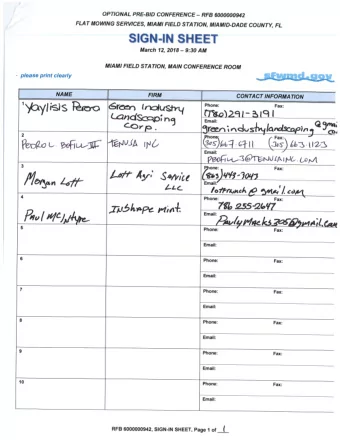 OPTIONAL PRE-BID CONFERENCE – RFB 6000000942
FLAT MOWING SERVICES, MIAMI FIELD STATION, MIAMI-DADE COUNTY, FL
SIGN-IN SHEET
March 12, 2018 – 9:30 AM
MIAMI FIELD STATION, MAIN CONFERENCE ROOM
- please print clearly
sfwmd.gov
NAME FIRM CONTACT INFORMATION
1 Yaylisis Perero Green Industry Landscaping Corp. Phone: (786) 291-3191 Fax:
Email: greenindustrylandscaping
2 PEDRO L BOFILL III TENUSA INC Phone: Fax: (305) 663-1123
Email:
3 Morgan Lott Lott Agri Service LLC Phone: Fax:
Email: lottranch@gmail.com
4 Paul McIntype InShape Mint. Phone: 786 255-2647 Fax:
Email: PaulyMacks305@gmail.com
5 Phone: Fax:
Email:
6 Phone: Fax:
Email:
7 Phone: Fax:
Email:
8 Phone: Fax:
Email:
9 Phone: Fax:
Email:
10 Phone: Fax:
Email:
RFB 6000000942, SIGN-IN SHEET, Page 1 of 1